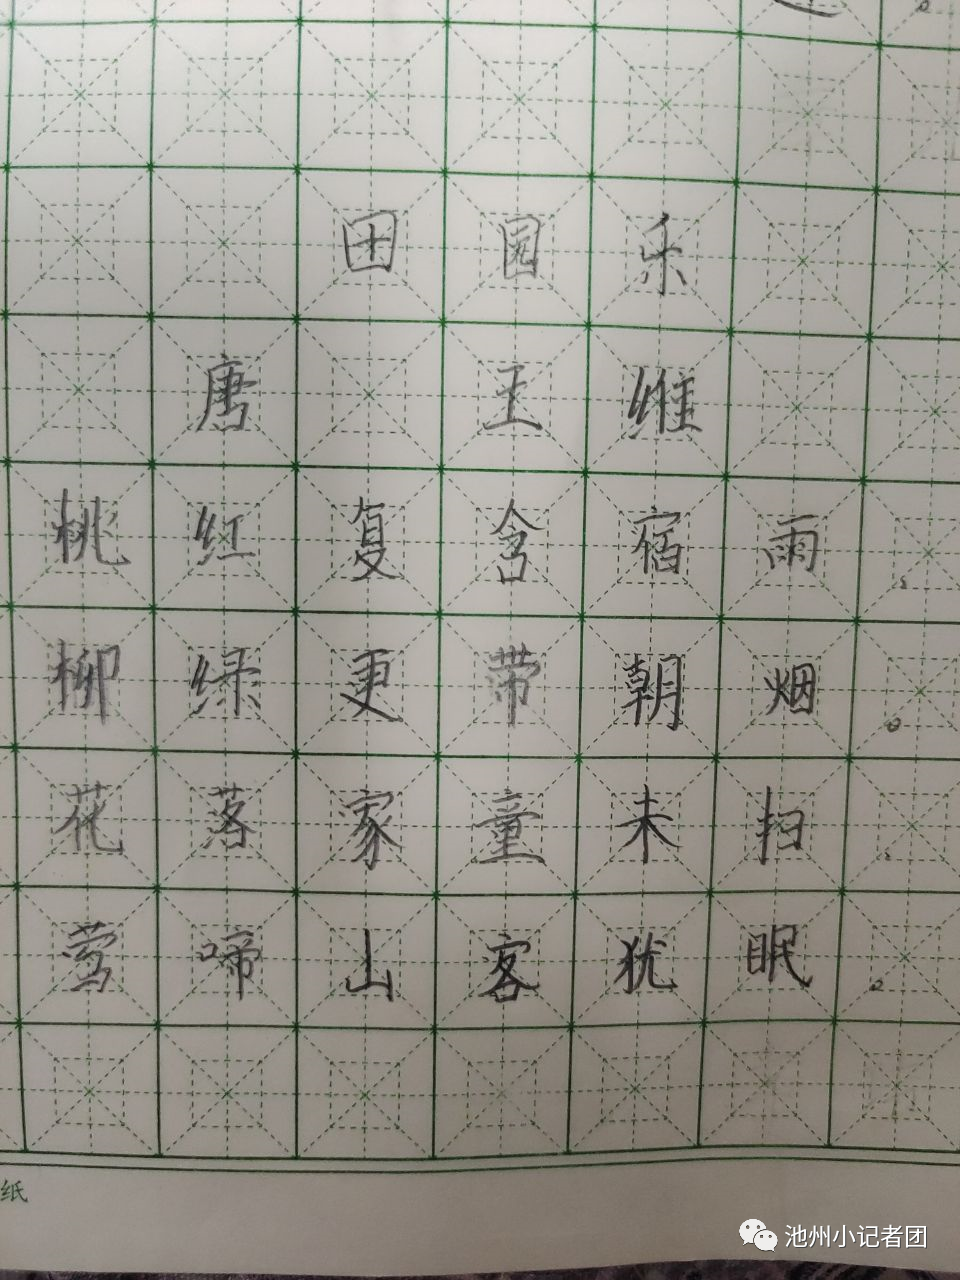 田园乐
唐 王维
桃红复含宿雨，
柳绿更带朝烟。
花落家童未扫，
莺啼山客犹眠。
纸
池州小记者团